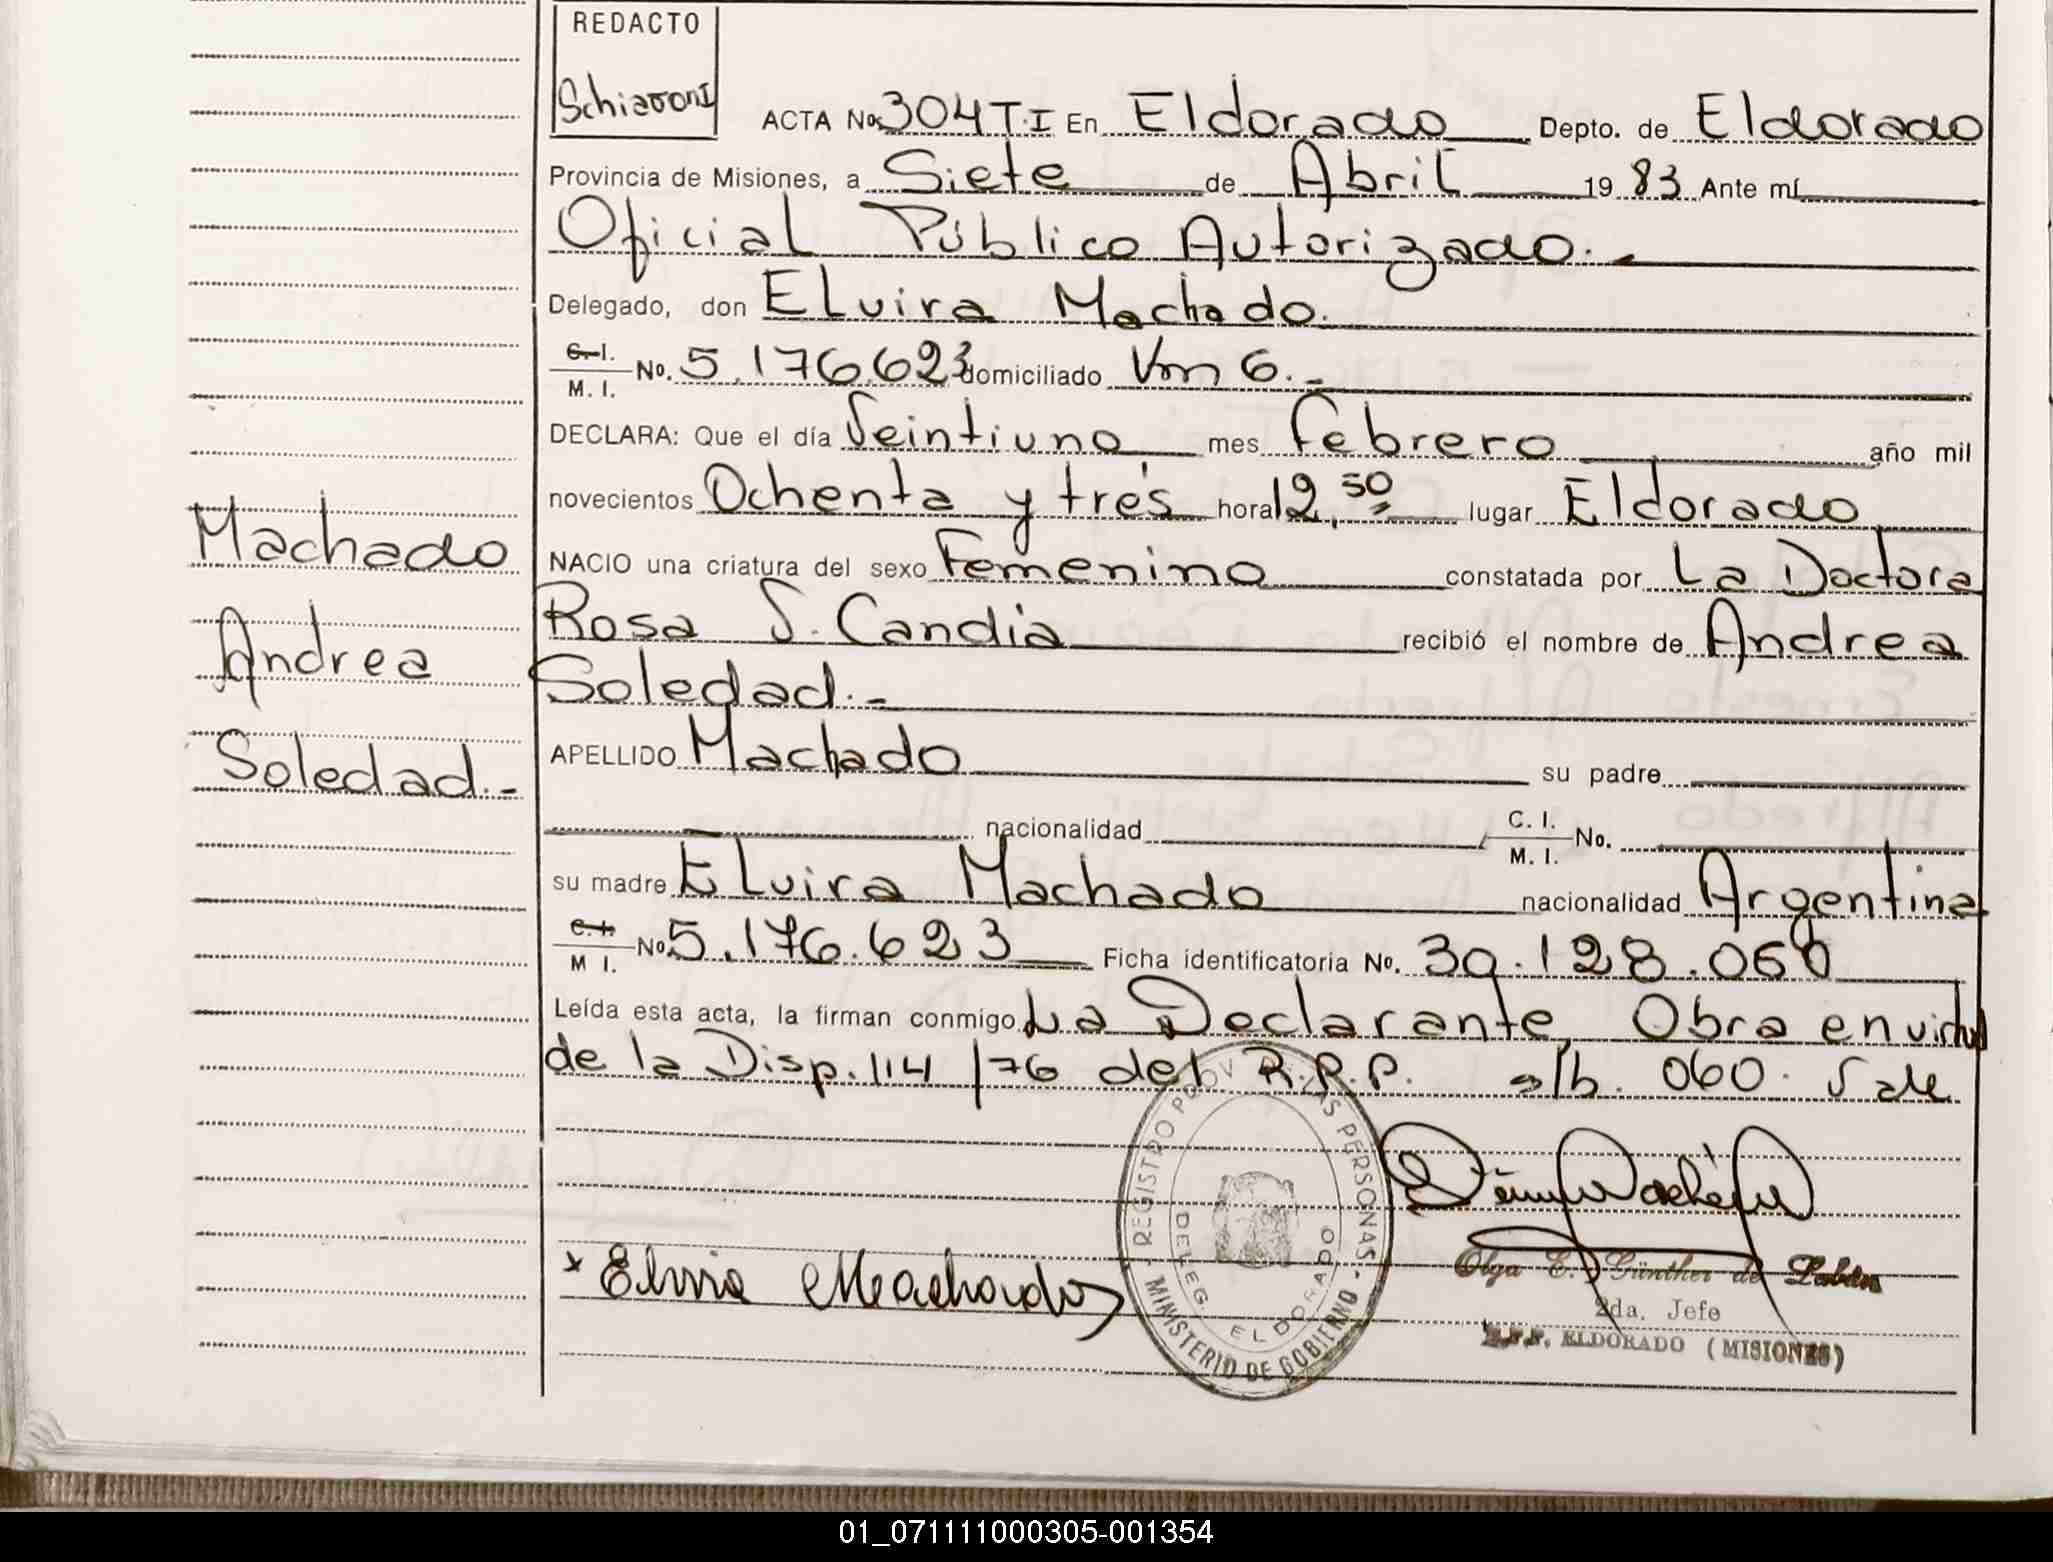 REDACTO
Schiavoni
ACTA No. 304 T.I En Eldorado Depto. de Eldorado
Provincia de Misiones, a Siete de Abril 19 83 Ante mí
Oficial Público Autorizado.-
Delegado, don Elvira Machado.
C.I. M.I. No. 5.176.623 domiciliado Km 6.-
DECLARA: Que el día Veintiuno mes Febrero año mil
novecientos Ochenta y trés hora 12,50 lugar Eldorado
Machado
NACIO una criatura del sexo Femenino constatada por La Doctora
Rosa S. Candia recibió el nombre de Andrea
Andrea
Soledad.-
APELLIDO Machado su padre
Soledad.-
nacionalidad C. I. M. I. No.
su madre Elvira Machado nacionalidad Argentina
C.I. M I. No 5.176.623 Ficha identificatoria No. 30.128.060
Leída esta acta, la firman conmigo La Declarante, Obra en virtud
de la Disp. 114/76 del R.P.P. s/b. 060. Vale
REGISTRO PROV. DE LAS PERSONAS - MINISTERIO DE GOBIERNO -
DELEG. ELDORADO
x Elvira Machado
Olga E. Günther de
2da. Jefe
ELDORADO (MISIONES)
01_071111000305-001354